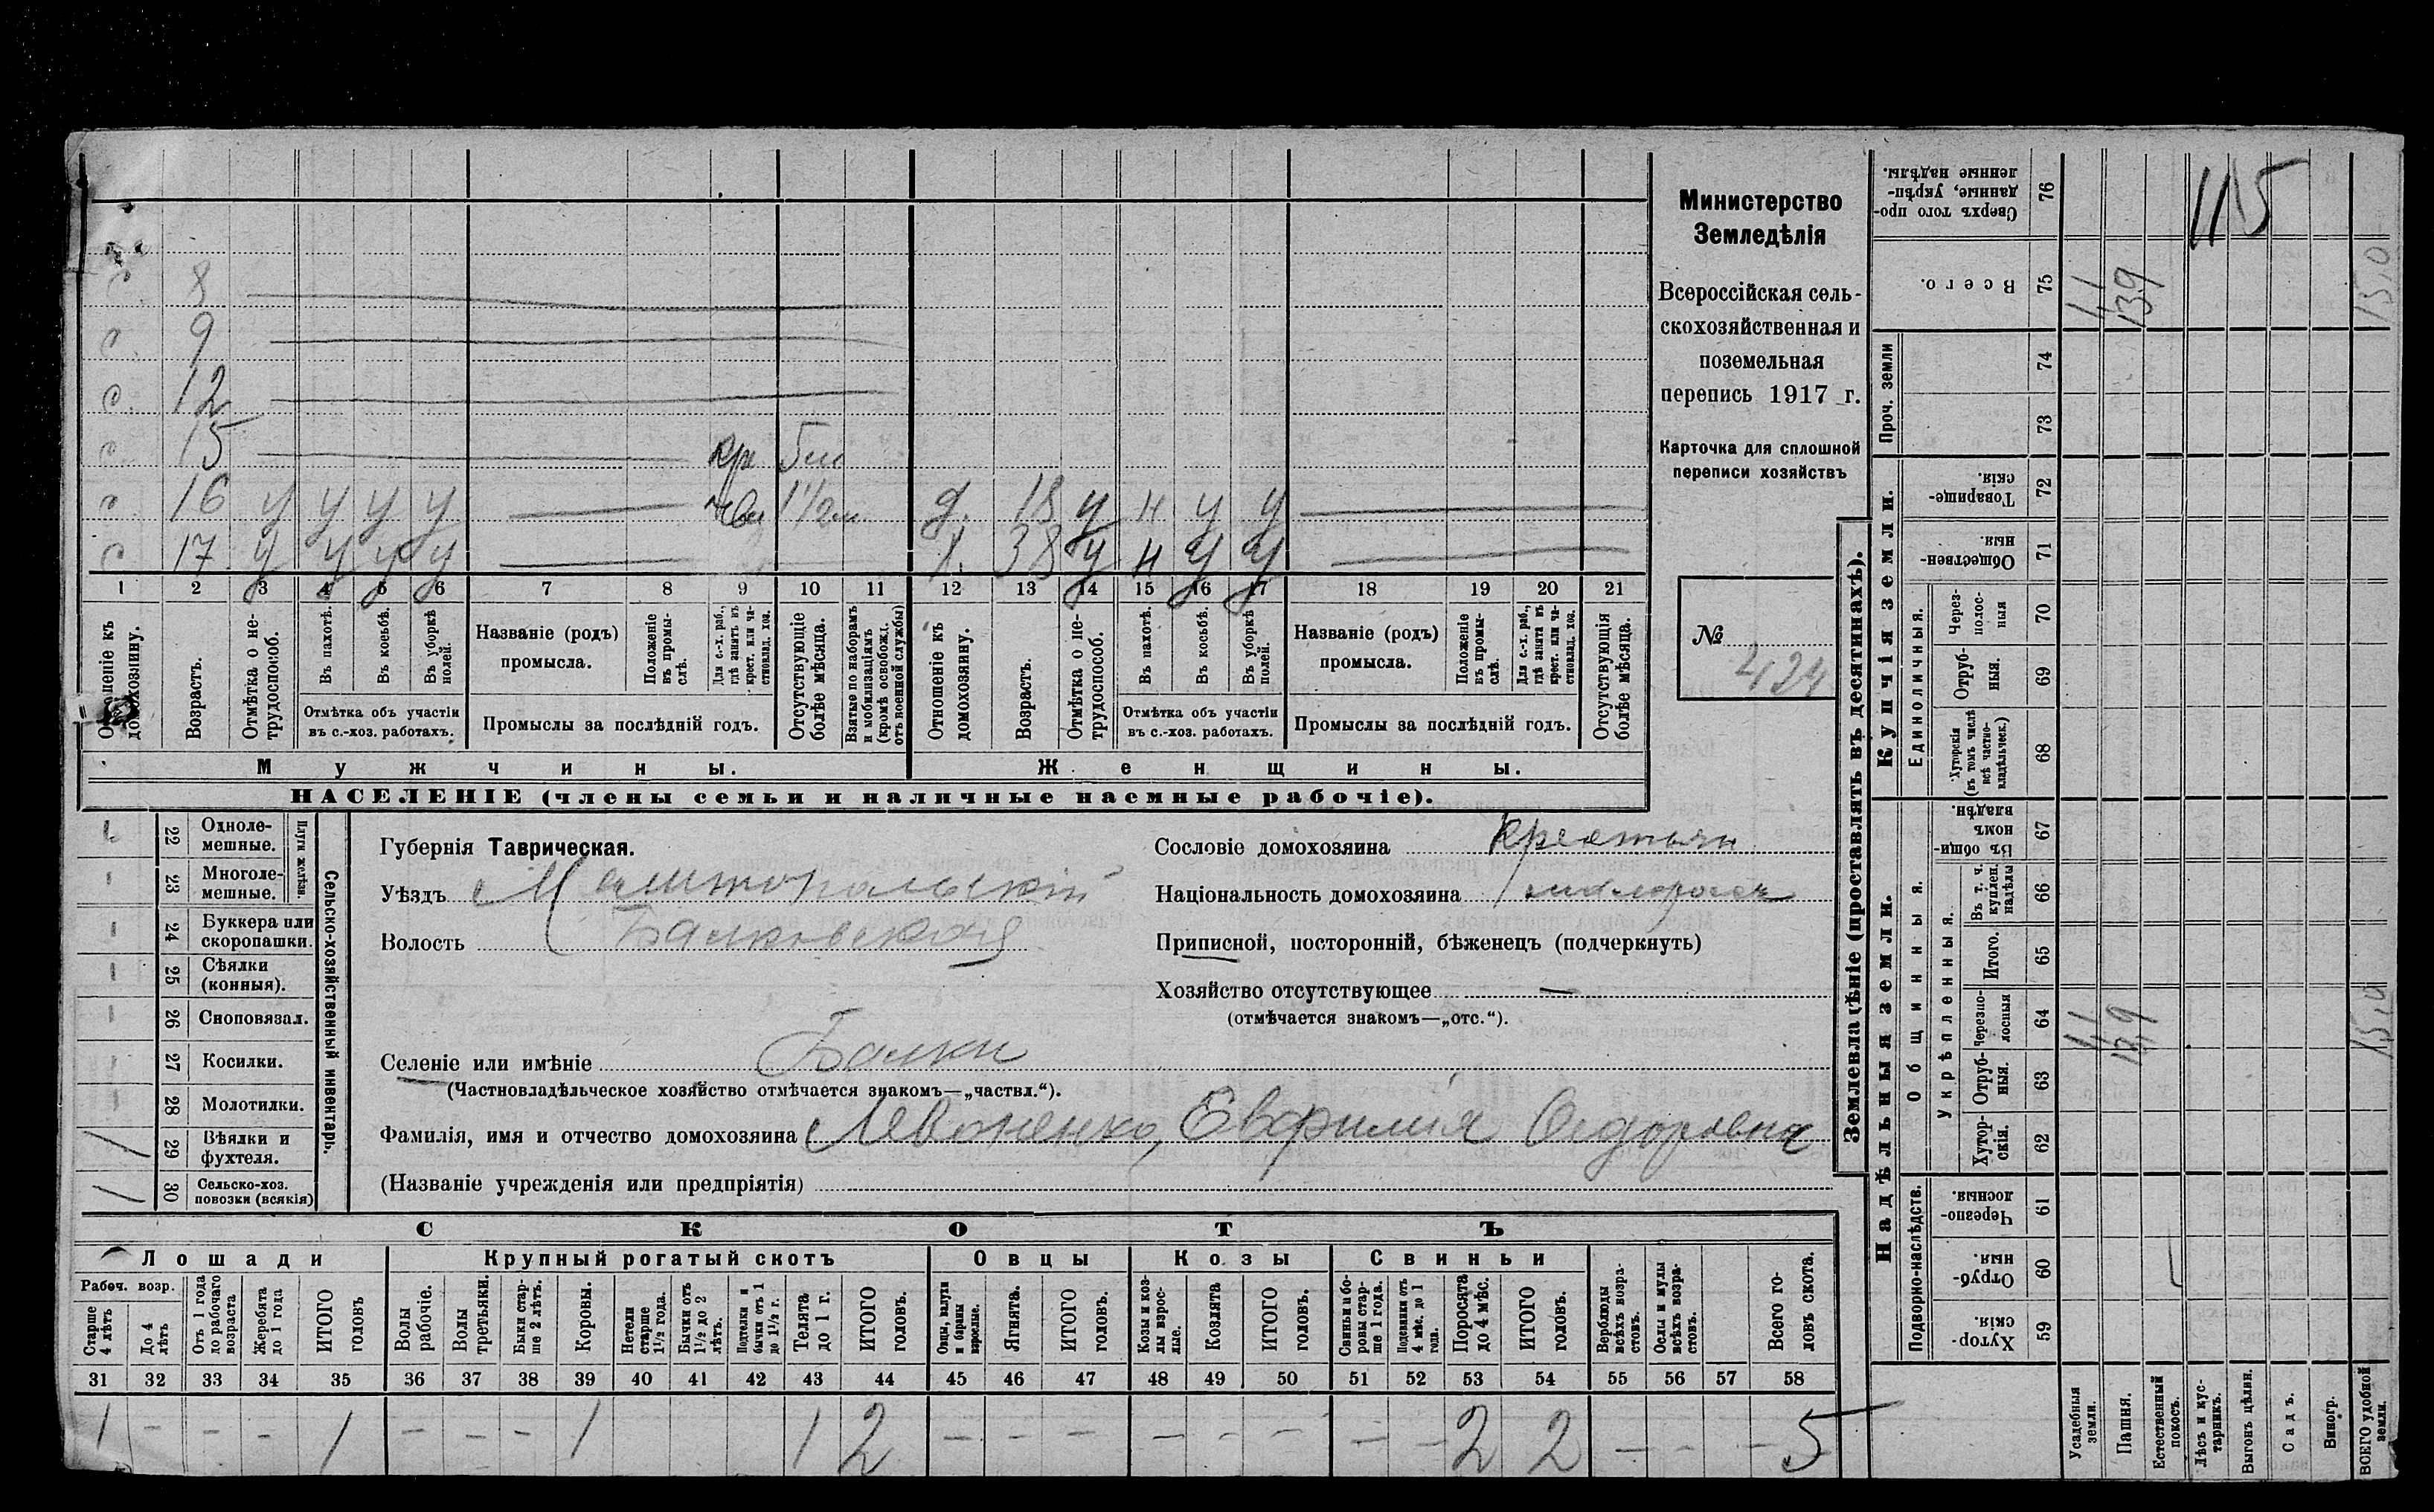 Министерство
Земледѣлія
Всероссійская сель-
скохозяйственная и
поземельная
перепись 1917 г.
Карточка для сплошной
переписи хозяйствъ
№ 424
с. 8
с. 9
с. 12
с. 15 5 м
с. 16 у у у у 1 1/2 м. д. 18 у н у у
с 17 у у у у ж. 38 у н у у
1 2 3 4 5 6 7 8 9 10 11 12 13 14 15 16 17 18 19 20 21
Отношеніе къ домохозяину.
Возрастъ.
Отмѣтка о не-трудоспособ.
Въ пахотѣ.
Въ косьбѣ.
Въ уборкѣ полей.
Отмѣтка объ участіи въ с.-хоз. работахъ.
Названіе (родъ) промысла.
Положеніе въ промы-слѣ.
Для с.-х. раб., гдѣ занятъ въ крест. или ча-стновлад. хоз.
Промыслы за послѣдній годъ.
Отсутствующіе болѣе мѣсяца.
Взятые по наборамъ и мобилизаціямъ (кромѣ освобожд. отъ военной службы)
Отношеніе къ домохозяину.
Возрастъ.
Отмѣтка о не-трудоспособ.
Въ пахотѣ.
Въ косьбѣ.
Въ уборкѣ полей.
Отмѣтка объ участіи въ с.-хоз. работахъ.
Названіе (родъ) промысла.
Положеніе въ промы-слѣ.
Для с.-х. раб., гдѣ занята въ крест. или ча-стновлад. хоз.
Промыслы за послѣдній годъ.
Отсутствующія болѣе мѣсяца.
Мужчины. Женщины.
НАСЕЛЕНІЕ (члены семьи и наличные наемные рабочіе).
Сельско-хозяйственный инвентарь.
Плуги желѣзн.
22 Одноле-мешные.
23 Многоле-мешные.
24 Буккера или скоропашки.
25 Сѣялки (конныя).
26 Сноповязал.
27 Косилки.
28 Молотилки.
1 29 Вѣялки и фухтеля.
1 30 Сельско-хоз. повозки (всякія)
Губернія Таврическая.
Уѣздъ Мелитопольскій
Волость Балковская
Селеніе или имѣніе Балки
(Частновладѣльческое хозяйство отмѣчается знакомъ—„частвл.“).
Фамилія, имя и отчество домохозяина Левоненко, Евфимия Сидоровна
(Названіе учрежденія или предпріятія)
Сословіе домохозяина крестьян
Національность домохозяина малоросс
Приписной, посторонній, бѣженецъ (подчеркнуть)
Хозяйство отсутствующее —
(отмѣчается знакомъ—„отс.“).
СКОТЪ
Лошади Крупный рогатый скотъ Овцы Козы Свиньи
Рабоч. возр.
Старше 4 лѣтъ
До 4 лѣтъ
Отъ 1 года до рабочаго возраста
Жеребята до 1 года
ИТОГО головъ
Волы рабочіе.
Волы третьяки.
Быки стар-ше 2 лѣтъ.
Коровы.
Нетели старше 1½ года.
Бычки отъ 1½ до 2 лѣтъ.
Подтелки и бычки отъ 1 до 1½ г.
Телята до 1 г.
ИТОГО головъ.
Овцы, валухи и бараны взрослые.
Ягнята.
ИТОГО головъ.
Козы и коз-лы взрос-лые.
Козлята
ИТОГО головъ.
Свиньи и бо-ровы стар-ше 1 года.
Подсвинки отъ 4 мѣс. до 1 года.
Поросята до 4 мѣс.
ИТОГО головъ.
Верблюды всѣхъ возра-стовъ.
Ослы и мулы всѣхъ возра-стовъ.
Всего го-ловъ скота.
31 32 33 34 35 36 37 38 39 40 41 42 43 44 45 46 47 48 49 50 51 52 53 54 55 56 57 58
1 – – – 1 – – – 1 1 2 – – – – – – – – 2 2 – – – 5
Землевладѣніе (проставлять въ десятинахъ).
Надѣльныя земли. Купчія земли. Проч. земли
Подворно-наслѣдств.
Общинныя.
Укрѣпленныя.
Единоличныя.
Хутор-скія. 59
Отруб-ныя. 60
Черезпо-лосныя. 61
Хутор-скія. 62
Отруб-ныя. 63
Черезпо-лосныя 64
Итого. 65
Въ т. ч. куплен. надѣлы 66
Въ общи-номъ владѣн. 67
Хуторскія (въ томъ числѣ всѣ частно-владѣльческ.) 68
Отруб-ныя. 69
Через-полос-ныя 70
Обществен-ныя. 71
Товарище-скія. 72
73
74
Всего. 75
Сверхъ того про-данные, укрѣп-ленные надѣлы. 76
Усадебныя земли.
Пашня.
Естественный покосъ.
Лѣсъ и кус-тарникъ.
Выгонъ цѣлин.
Садъ.
Виногр.
ВСЕГО удобной земли.
1,1 13,9 15,0
1,1 13,9 15,0
115